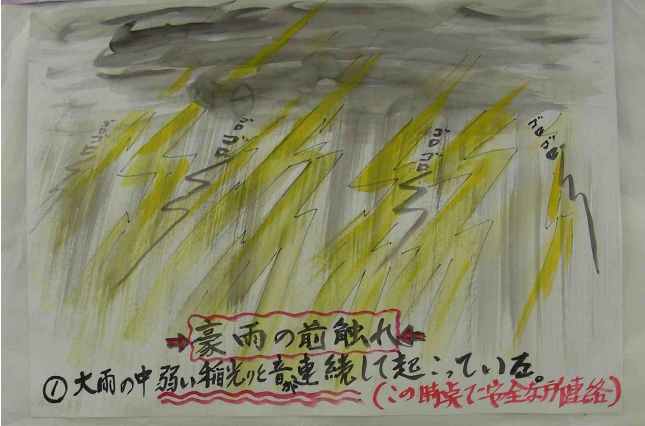 ゴロゴロ
ゴロゴロ
ゴロゴロ
ゴロゴロ
豪雨の前触れ
①大雨の中弱い稲光りと音が連続して起こっている。
(この時点で安全な 連絡)